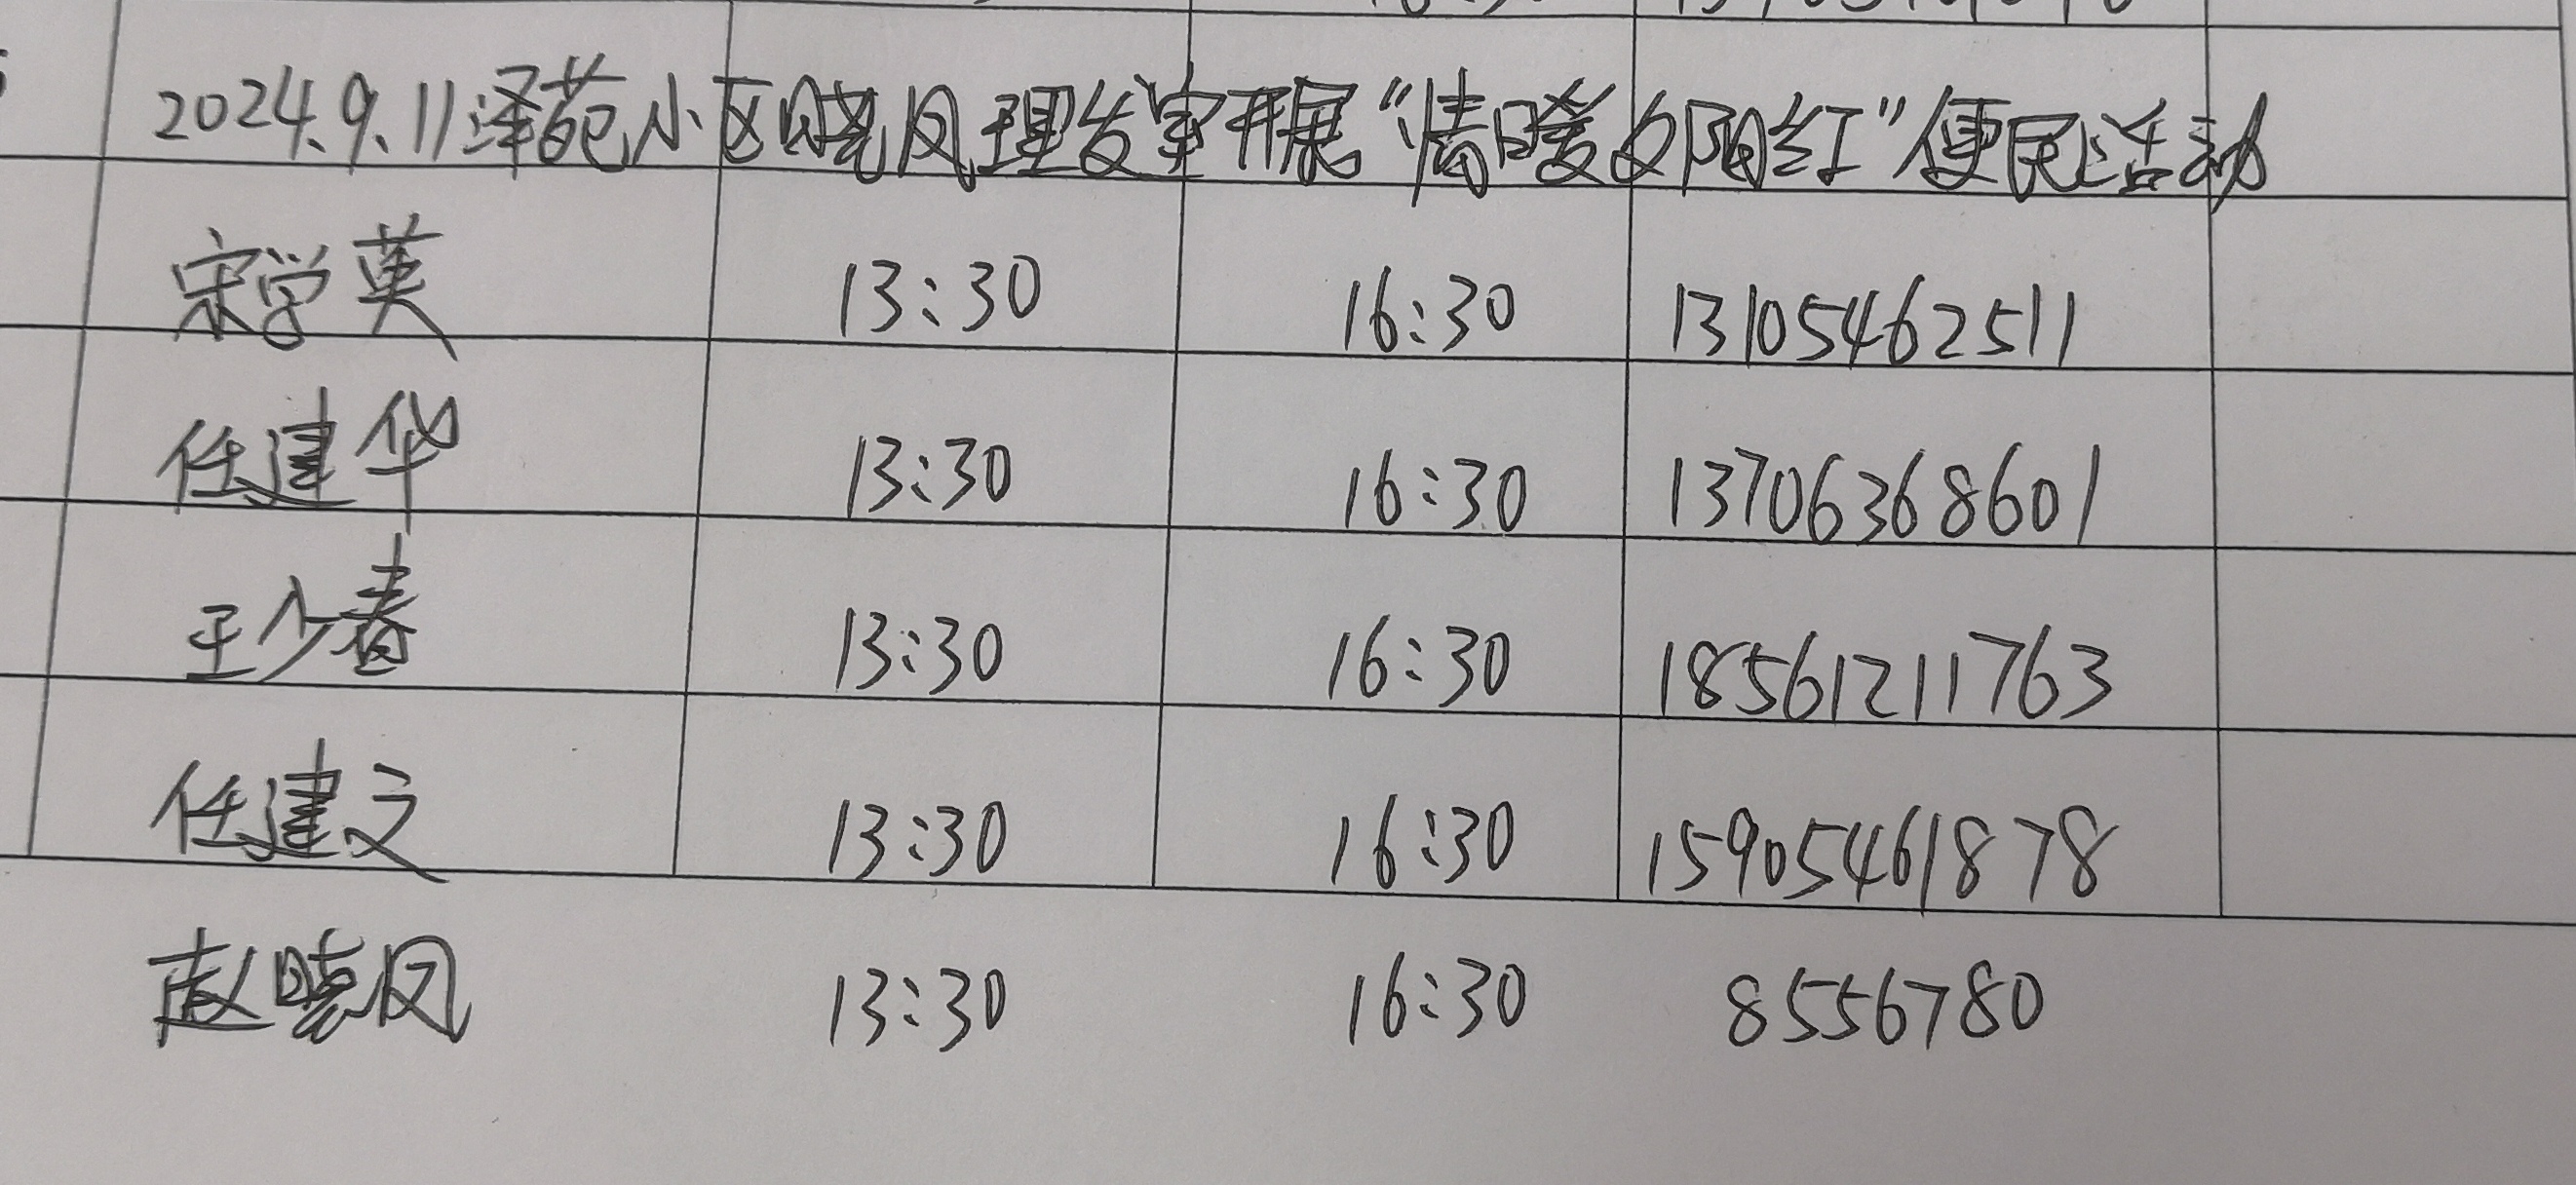 2024.9.11泽苑小区晓凤理发室开展“情暖夕阳红”便民活动
宋学英 13:30 16:30 13105462511
任建华 13:30 16:30 13706368601
王少春 13:30 16:30 18561211763
任建文 13:30 16:30 15905461878
赵晓凤 13:30 16:30 8556780